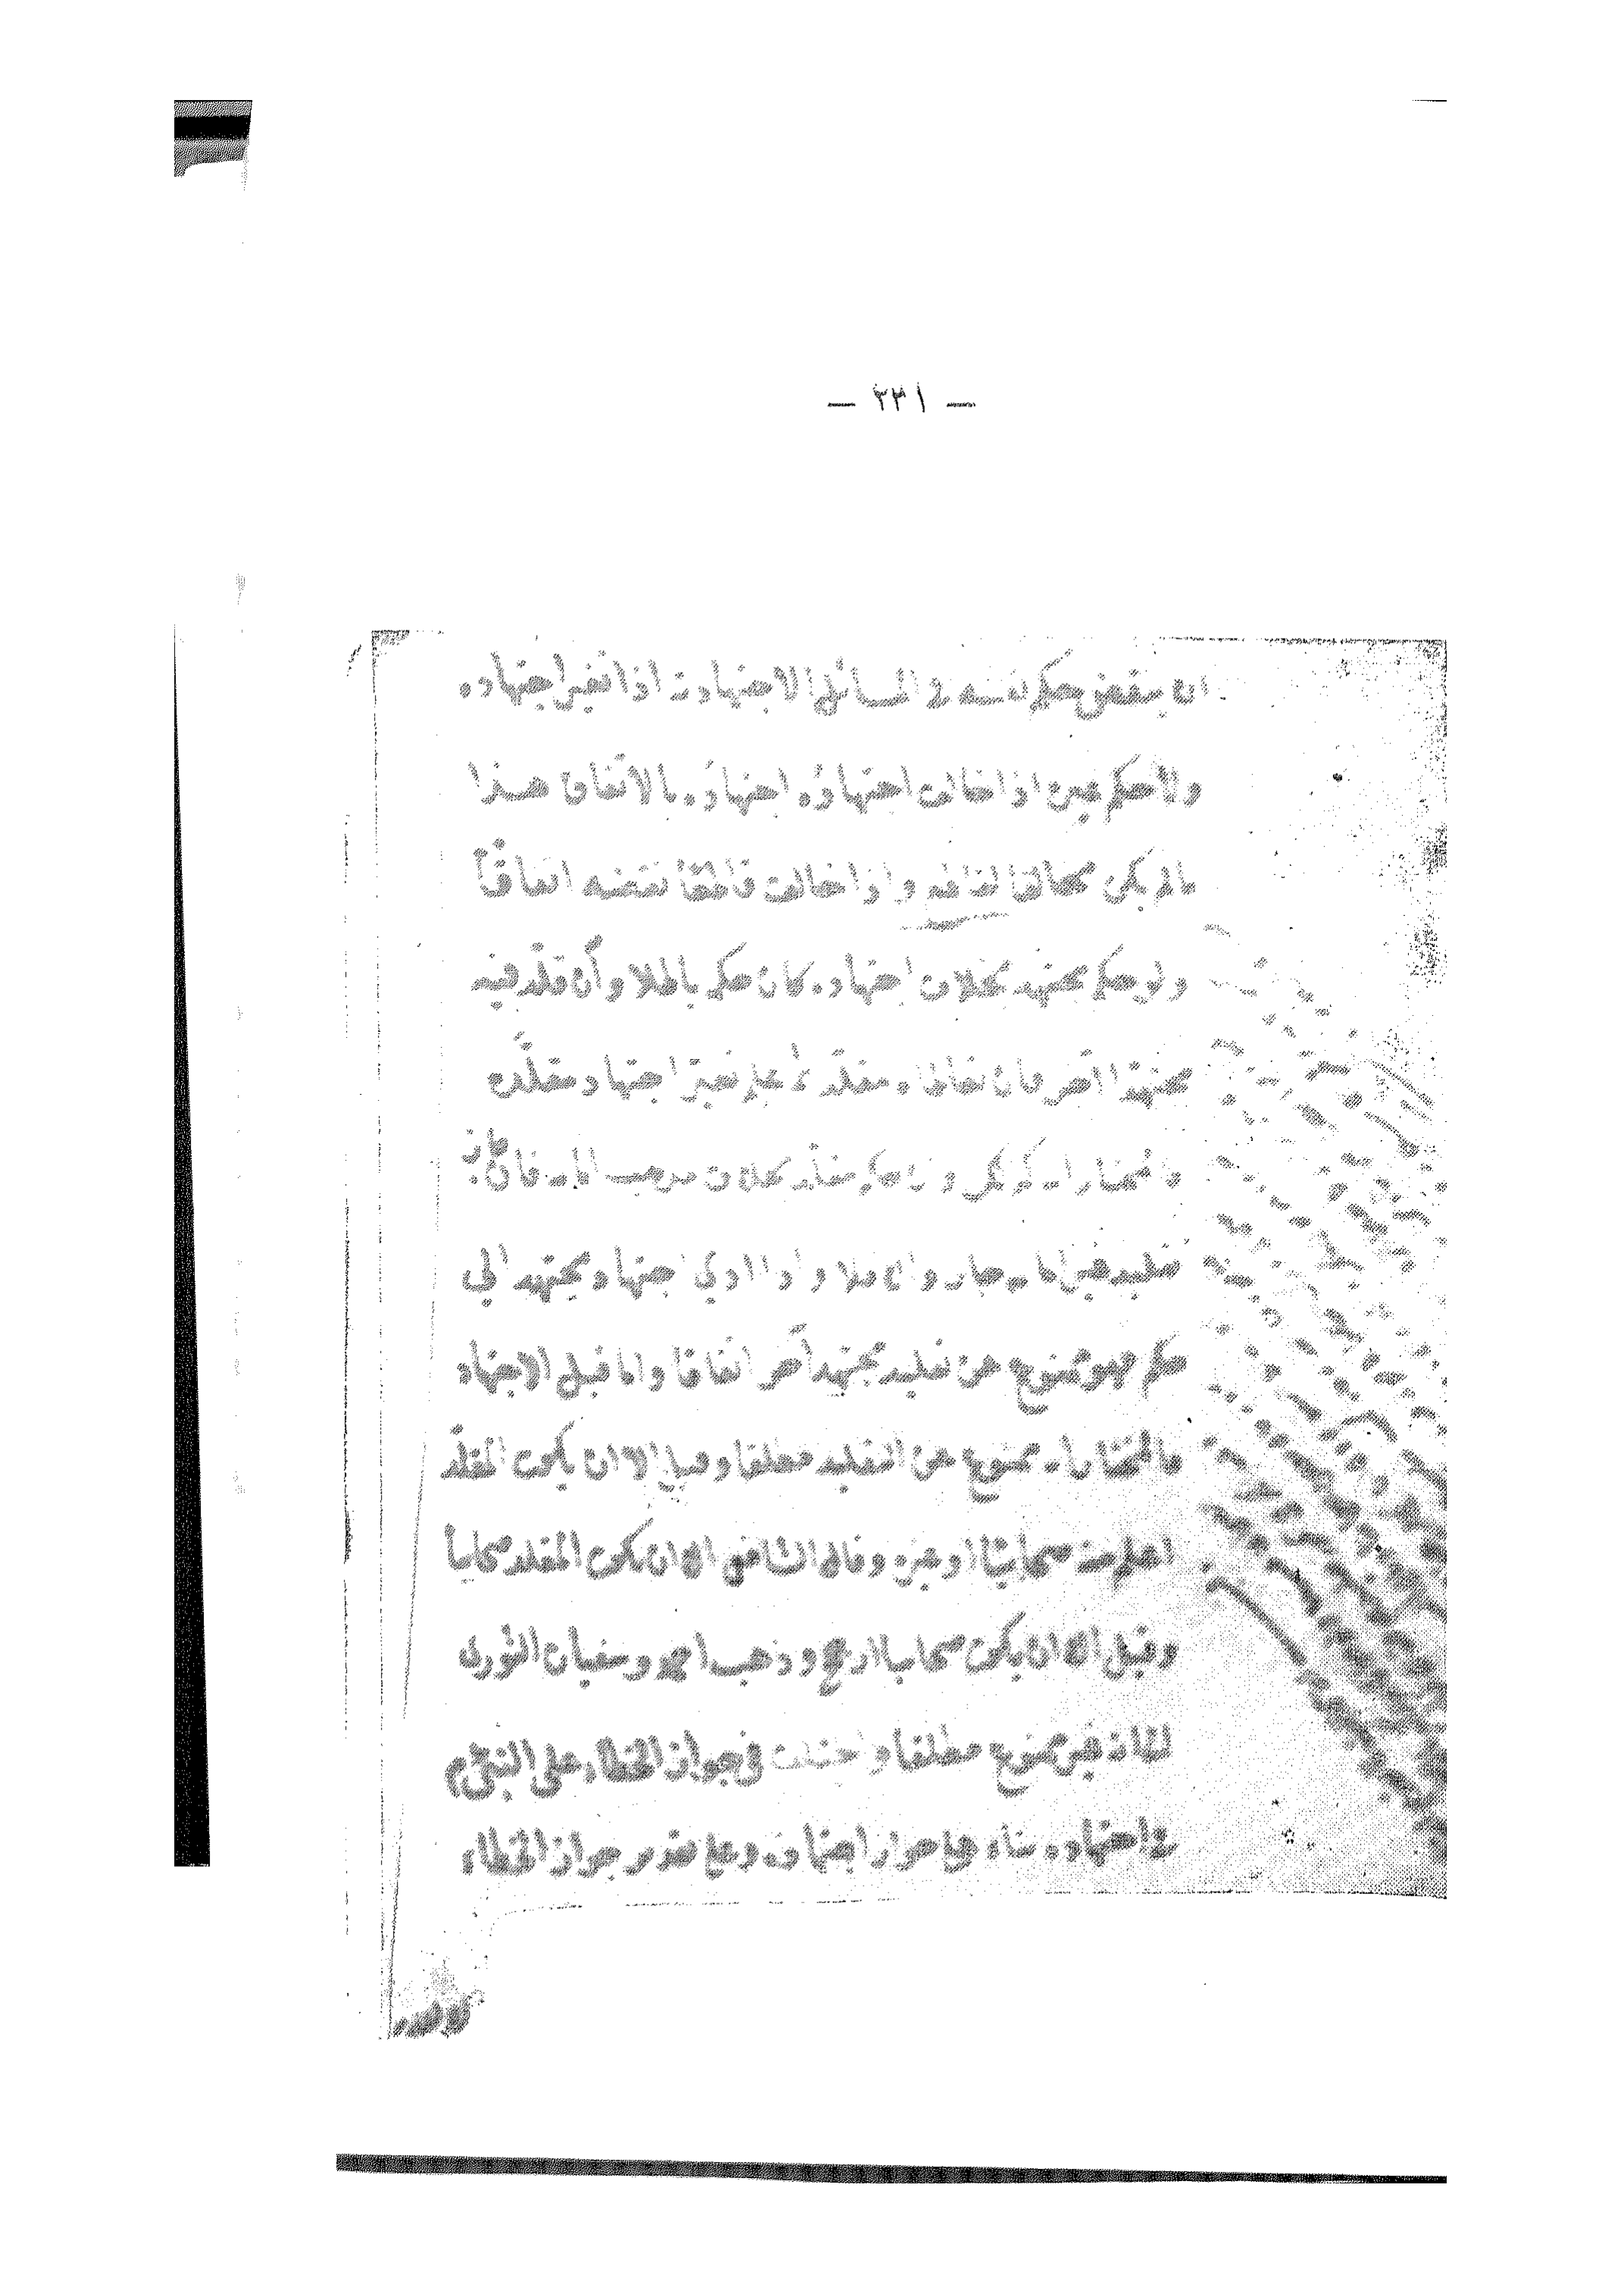 — ٢٣١ —
ان ينقض حكم نفسه في المسائل الاجتهادية اذا تغير اجتهاده
ولا حكم غيره اذا خالف اجتهاده اجتهاده بالاتفاق هذا
ما لم يكن مخالفا لقاطع واذا خالف قاطعا نقضه اتفاقا
ولو حكم مجتهد بخلاف اجتهاده كان حكمه باطلا وان قلد فيه
مجتهدا آخر فان تغير اجتهاد مقلده
والمختار كذلك ولو حكم مقلد بخلاف مذهب امامه فان جاز
تقليد غير امامه جاز والا فلا واذا ادى اجتهاد مجتهد الى
حكم فهو ممنوع عن تقليد مجتهد آخر اتفاقا واما قبل الاجتهاد
فالمختار انه ممنوع عن التقليد مطلقا وقيل الا ان يكون المقلد
اعلم منه صحابيا او غيره وقال الشافعي الا ان يكون المقلد صحابيا
وقيل الا ان يكون صحابيا ارجح وذهب احمد وسفيان الثوري
الى انه غير ممنوع مطلقا واختلف في جواز الخطاء على النبي م
في اجتهاده بناء على جواز اجتهاده وعلى تقدير جواز الخطاء